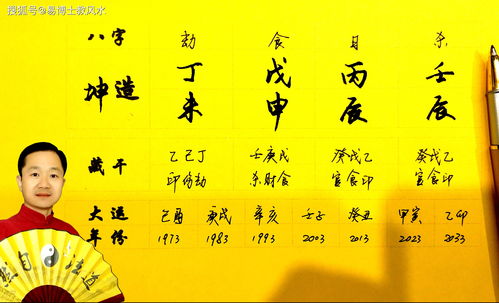 搜狐号@易博士教风水
八字 劫 食 日 杀
坤造 丁 戊 丙 壬
未 申 辰 辰
藏干 乙己丁 壬庚戊 癸戊乙 癸戊乙
印伤劫 杀财食 官食印 官食印
大运 己酉 庚戌 辛亥 壬子 癸丑 甲寅 乙卯
年份 1973 1983 1993 2003 2013 2023 2033
然自法道